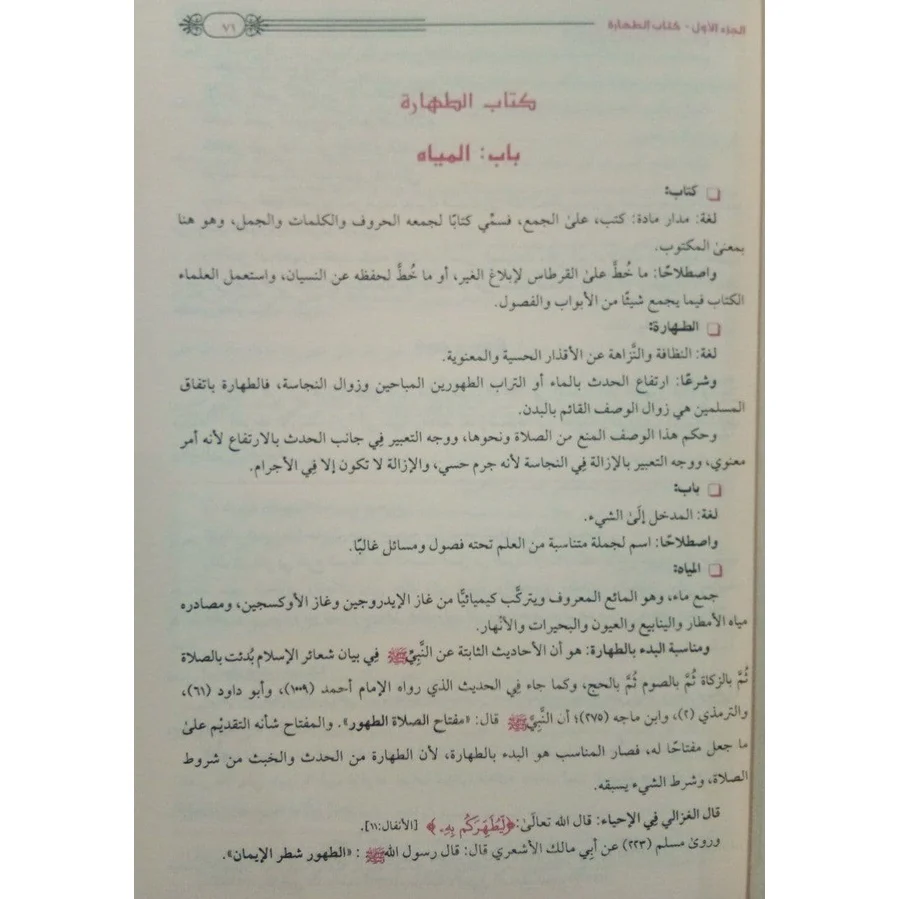 الجزء الأول - كتاب الطهارة
٧١
كتاب الطهارة
باب: المياه
❏ كتاب:
لغة: مدار مادة: كتب، علىٰ الجمع، فسمِّي كتابًا لجمعه الحروف والكلمات والجمل، وهو هنا
بمعنىٰ المكتوب.
واصطلاحًا: ما خُطَّ علىٰ القرطاس لإبلاغ الغير، أو ما خُطَّ لحفظه عن النسيان، واستعمل العلماء
الكتاب فيما يجمع شيئًا من الأبواب والفصول.
❏ الطهارة:
لغة: النظافة والنَّزاهة عن الأقذار الحسية والمعنوية.
وشرعًا: ارتفاع الحدث بالماء أو التراب الطهورين المباحين وزوال النجاسة، فالطهارة باتفاق
المسلمين هي زوال الوصف القائم بالبدن.
وحكم هذا الوصف المنع من الصلاة ونحوها، ووجه التعبير فِي جانب الحدث بالارتفاع لأنه أمر
معنوي، ووجه التعبير بالإزالة فِي النجاسة لأنه جرم حسي، والإزالة لا تكون إلا فِي الأجرام.
❏ باب:
لغة: المدخل إلَىٰ الشيء.
واصطلاحًا: اسم لجملة متناسبة من العلم تحته فصول ومسائل غالبًا.
❏ المياه:
جمع ماء، وهو المائع المعروف ويتركَّب كيميائيًّا من غاز الإيدروجين وغاز الأوكسجين، ومصادره
مياه الأمطار والينابيع والعيون والبحيرات والأنْهار.
ومناسبة البدء بالطهارة: هو أن الأحاديث الثابتة عن النَّبِيِّ ﷺ فِي بيان شعائر الإسلام بُدئت بالصلاة
ثُمَّ بالزكاة ثُمَّ بالصوم ثُمَّ بالحج، وكما جاء فِي الحديث الذي رواه الإمام أحمد (١٠٠٩)، وأبو داود (٦١)،
والترمذي (٢)، وابن ماجه (٢٧٥)؛ أن النَّبِيَّ ﷺ قال: «مفتاح الصلاة الطهور». والمفتاح شأنه التقديْم علىٰ
ما جعل مفتاحًا له، فصار المناسب هو البدء بالطهارة، لأن الطهارة من الحدث والخبث من شروط
الصلاة، وشرط الشيء يسبقه.
قال الغزالي فِي الإحياء: قال الله تعالَىٰ: ﴿لِّيُطَهِّرَكُم بِهِۦ﴾ [الأنفال:١١].
وروىٰ مسلم (٢٢٣) عن أبِي مالك الأشعري قال: قال رسول الله ﷺ : «الطهور شطر الإيمان».